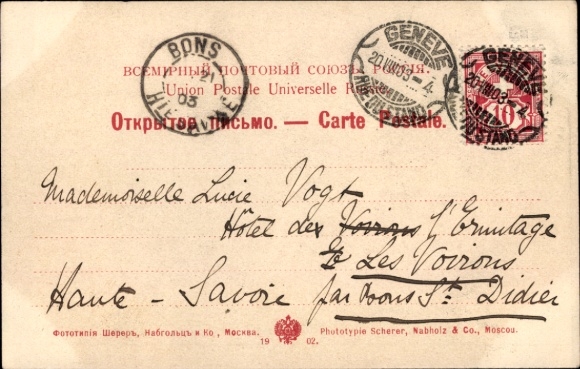 BONS
21
03
HTE SAVOIE
GENEVE
20 VIII 03 - 4
GENEVE
20 VIII 03 - 4
10
ВСЕМІРНЫЙ ПОЧТОВЫЙ СОЮЗЪ. РОССІЯ.
Union Postale Universelle Russie
Открытое письмо. — Carte Postale.
Mademoiselle Lucie Vogt
Hôtel des Voirons l'Ermitage
Les Voirons
Haute - Savoie par Bons St. Didier
Фототипія Шереръ, Набгольцъ и Ко, Москва. Phototypie Scherer, Nabholz & Co., Moscou.
1902.